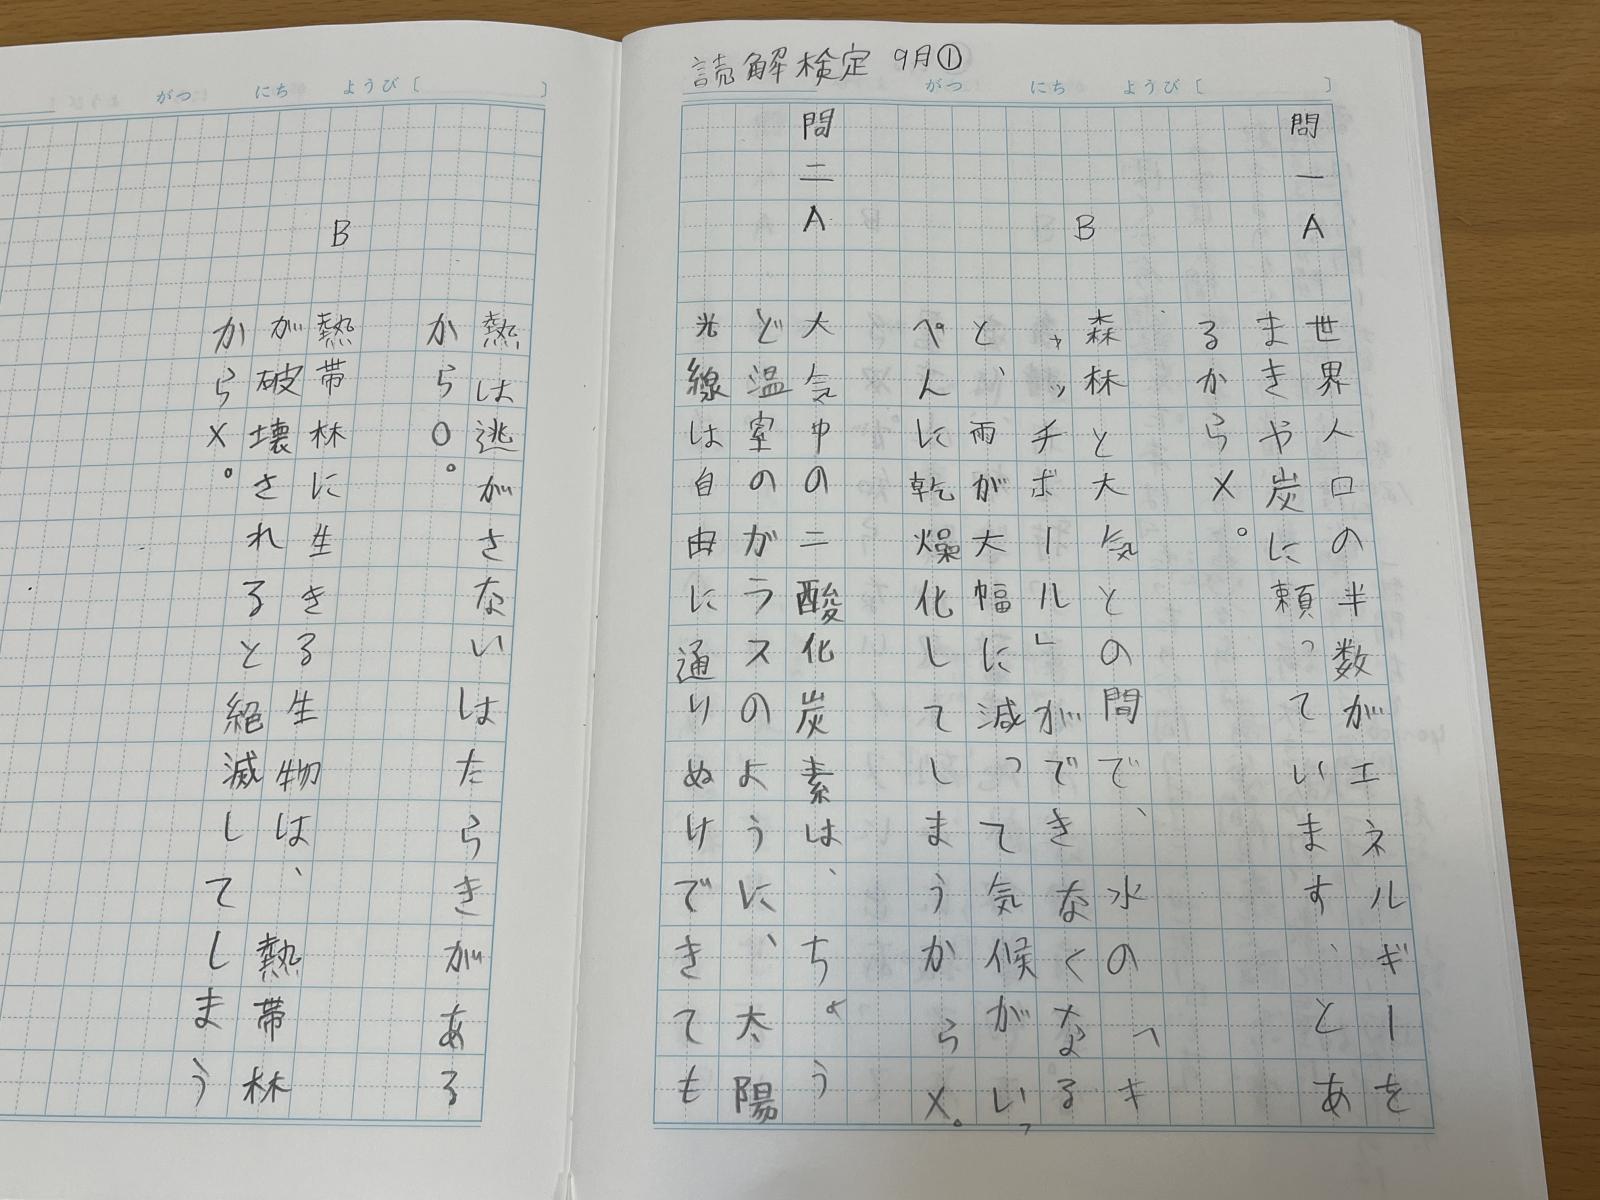 読解検定 9月①
がつ にち ようび〔 〕
問一A 世界人口の半数がエネルギーを
まきや炭に頼っています、とあ
るから×。
B 森林と大気との間で、水の「キ
ャッチボール」ができなくなる
と、雨が大幅に減って気候がいっ
ぺんに乾燥化してしまうから×。
問二A 大気中の二酸化炭素は、ちょう
ど温室のガラスのように、太陽
光線は自由に通りぬけできても
がつ にち ようび〔 〕
熱は逃がさないはたらきがある
から○。
B 熱帯林に生きる生物は、熱帯林
が破壊されると絶滅してしまう
から×。